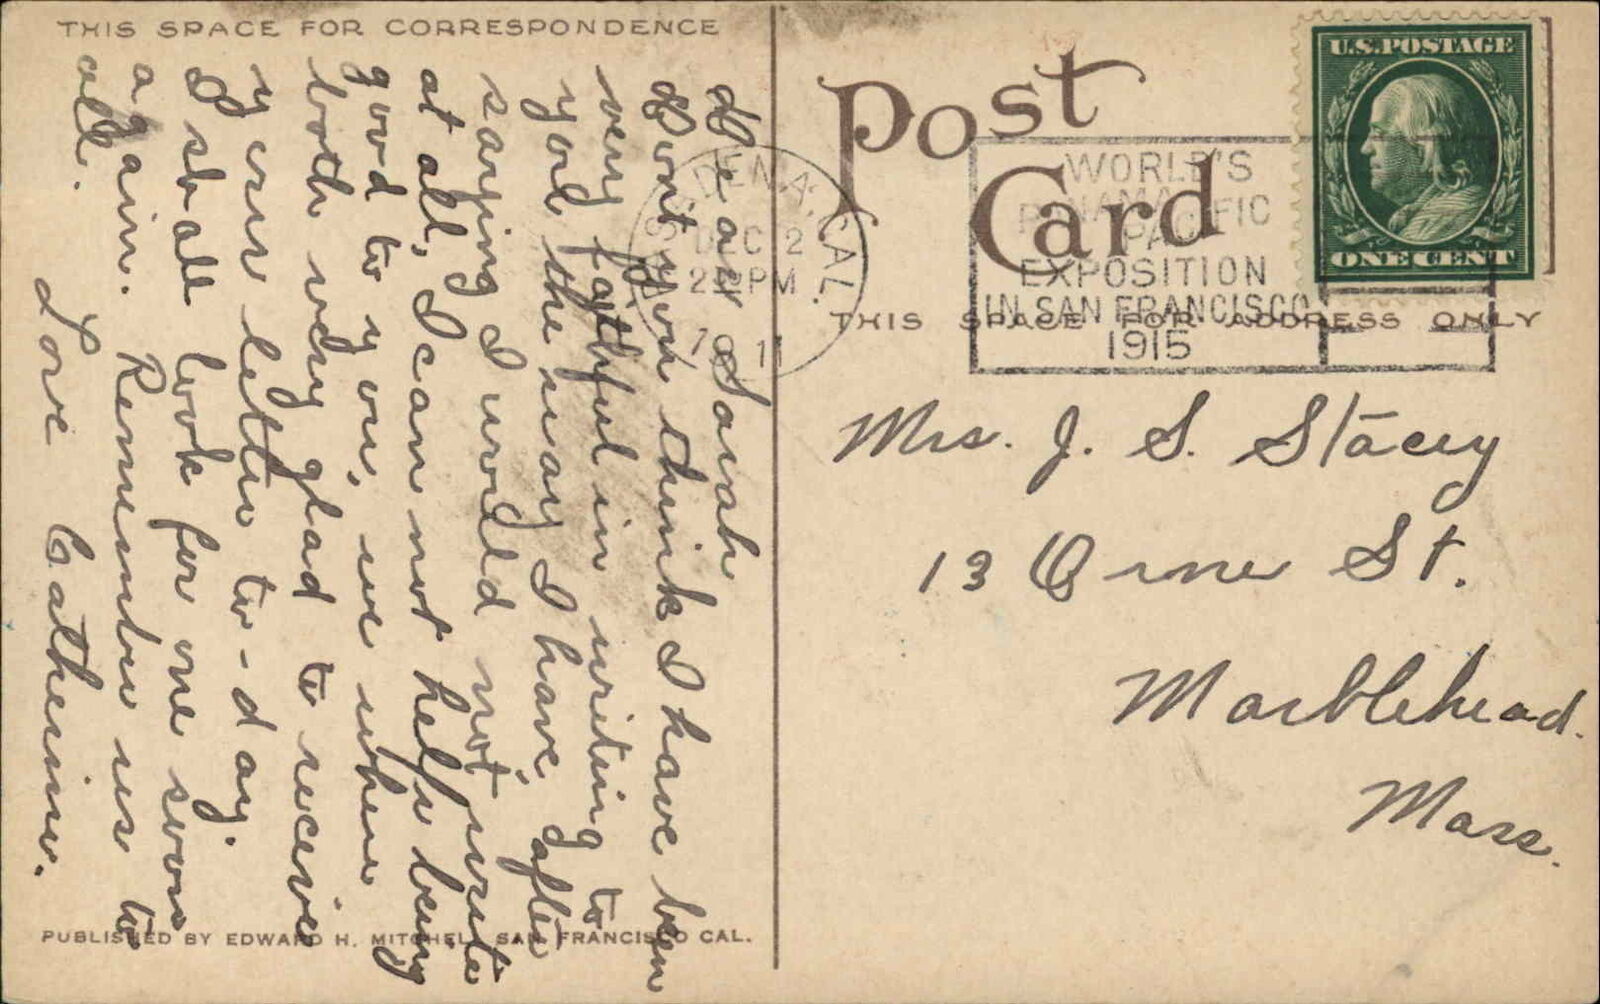 THIS SPACE FOR CORRESPONDENCE
Dear Sarah
Don't you think I have been
very faithful in writing to
you the way I have, after
saying I would not write
at all, I can not help being
good to you, we when
both very glad to receive
your letter to-day.
I shall look for one soon
again. Remember us to
all.
Love Catherine.
PUBLISHED BY EDWARD H. MITCHELL SAN FRANCISCO CAL.
Post
Card
THIS SPACE FOR ADDRESS ONLY
U.S. POSTAGE
ONE CENT
PASADENA, CAL.
DEC 2
PM
WORLD'S
PANAMA
PACIFIC
EXPOSITION
IN SAN FRANCISCO
1915
Mrs. J. S. Stacey
13 Orne St.
Marblehead.
Mass.